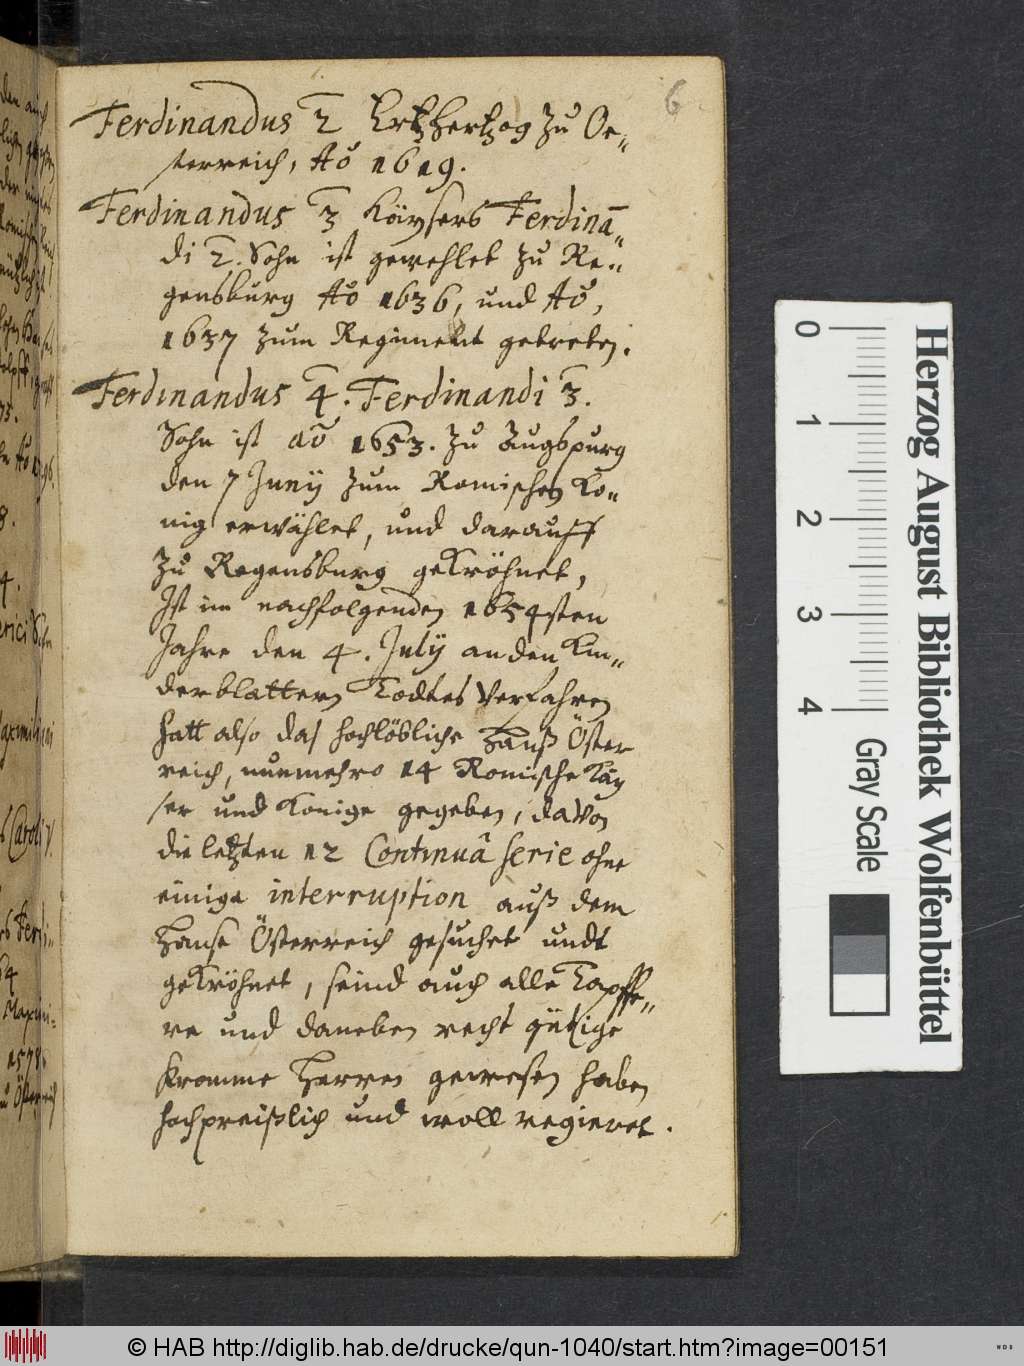 6
Ferdinandus 2 Ertzhertzog zu Oe„
sterreich, Ao 1619.
Ferdinandus 3 Kaÿsers Ferdinā„
di 2. Sohn ist gewehlet zu Re„
gensburg Ao 1636, und Ao,
1637 zum Regiment getreten.
Ferdinandus 4. Ferdinandi 3.
Sohn ist ao 1653. zu Augspurg
den 7 Junÿ zum Romischen Kö„
nig erwählet, und darauff
zu Regensburg gekröhnet,
Ist im nachfolgenden 1654sten
Jahre den 4. Julÿ an den Kin„
derblattern Todtes Verfahren
hatt also das hochlöbliche Hauß Öster
reich, nunmehro 14 Romische Kaÿ
ser und Könige gegeben, davon
die letzten 12 Continuâ serie ohne
einige interruption auß dem
Hause Österreich gesuchet undt
gekröhnet, seind auch alle Tapffe„
re und daneben recht gütige
fromme Herren gewesen haben
hochpreißlich und woll regieret.
0
1
2
3
4
Gray Scale
Herzog August Bibliothek Wolfenbüttel
© HAB http://diglib.hab.de/drucke/qun-1040/start.htm?image=00151